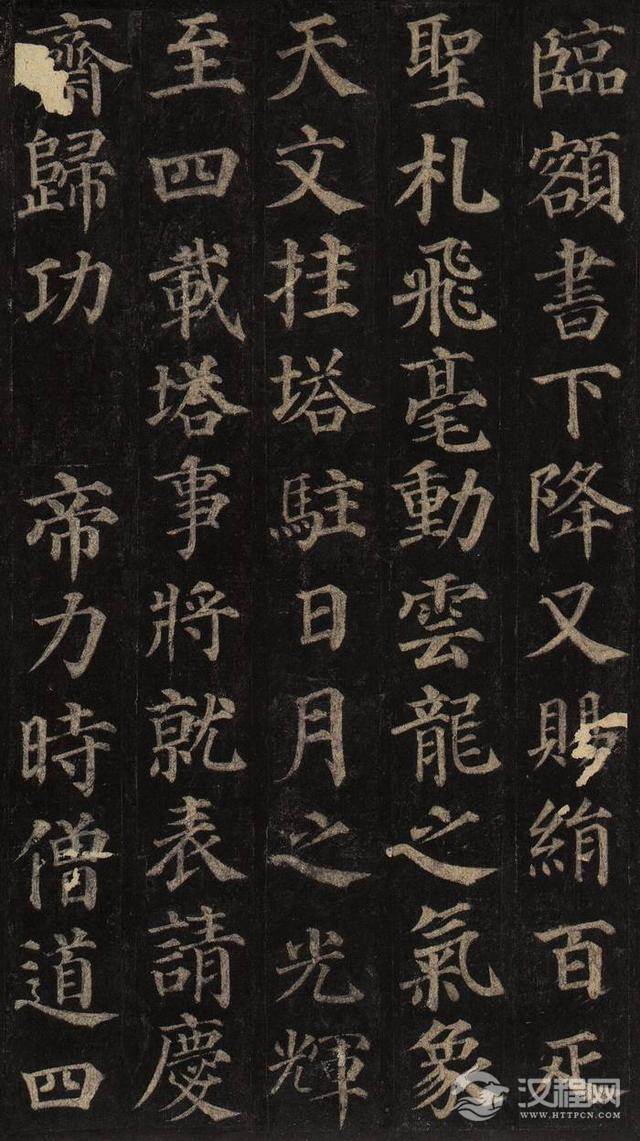 臨額書下降又賜絹百匹
聖札飛毫動雲龍之氣象
天文挂塔駐日月之光輝
至四載塔事將就表請慶
齋歸功 帝力時僧道四
汉程网
WWW.HTTPCN.COM